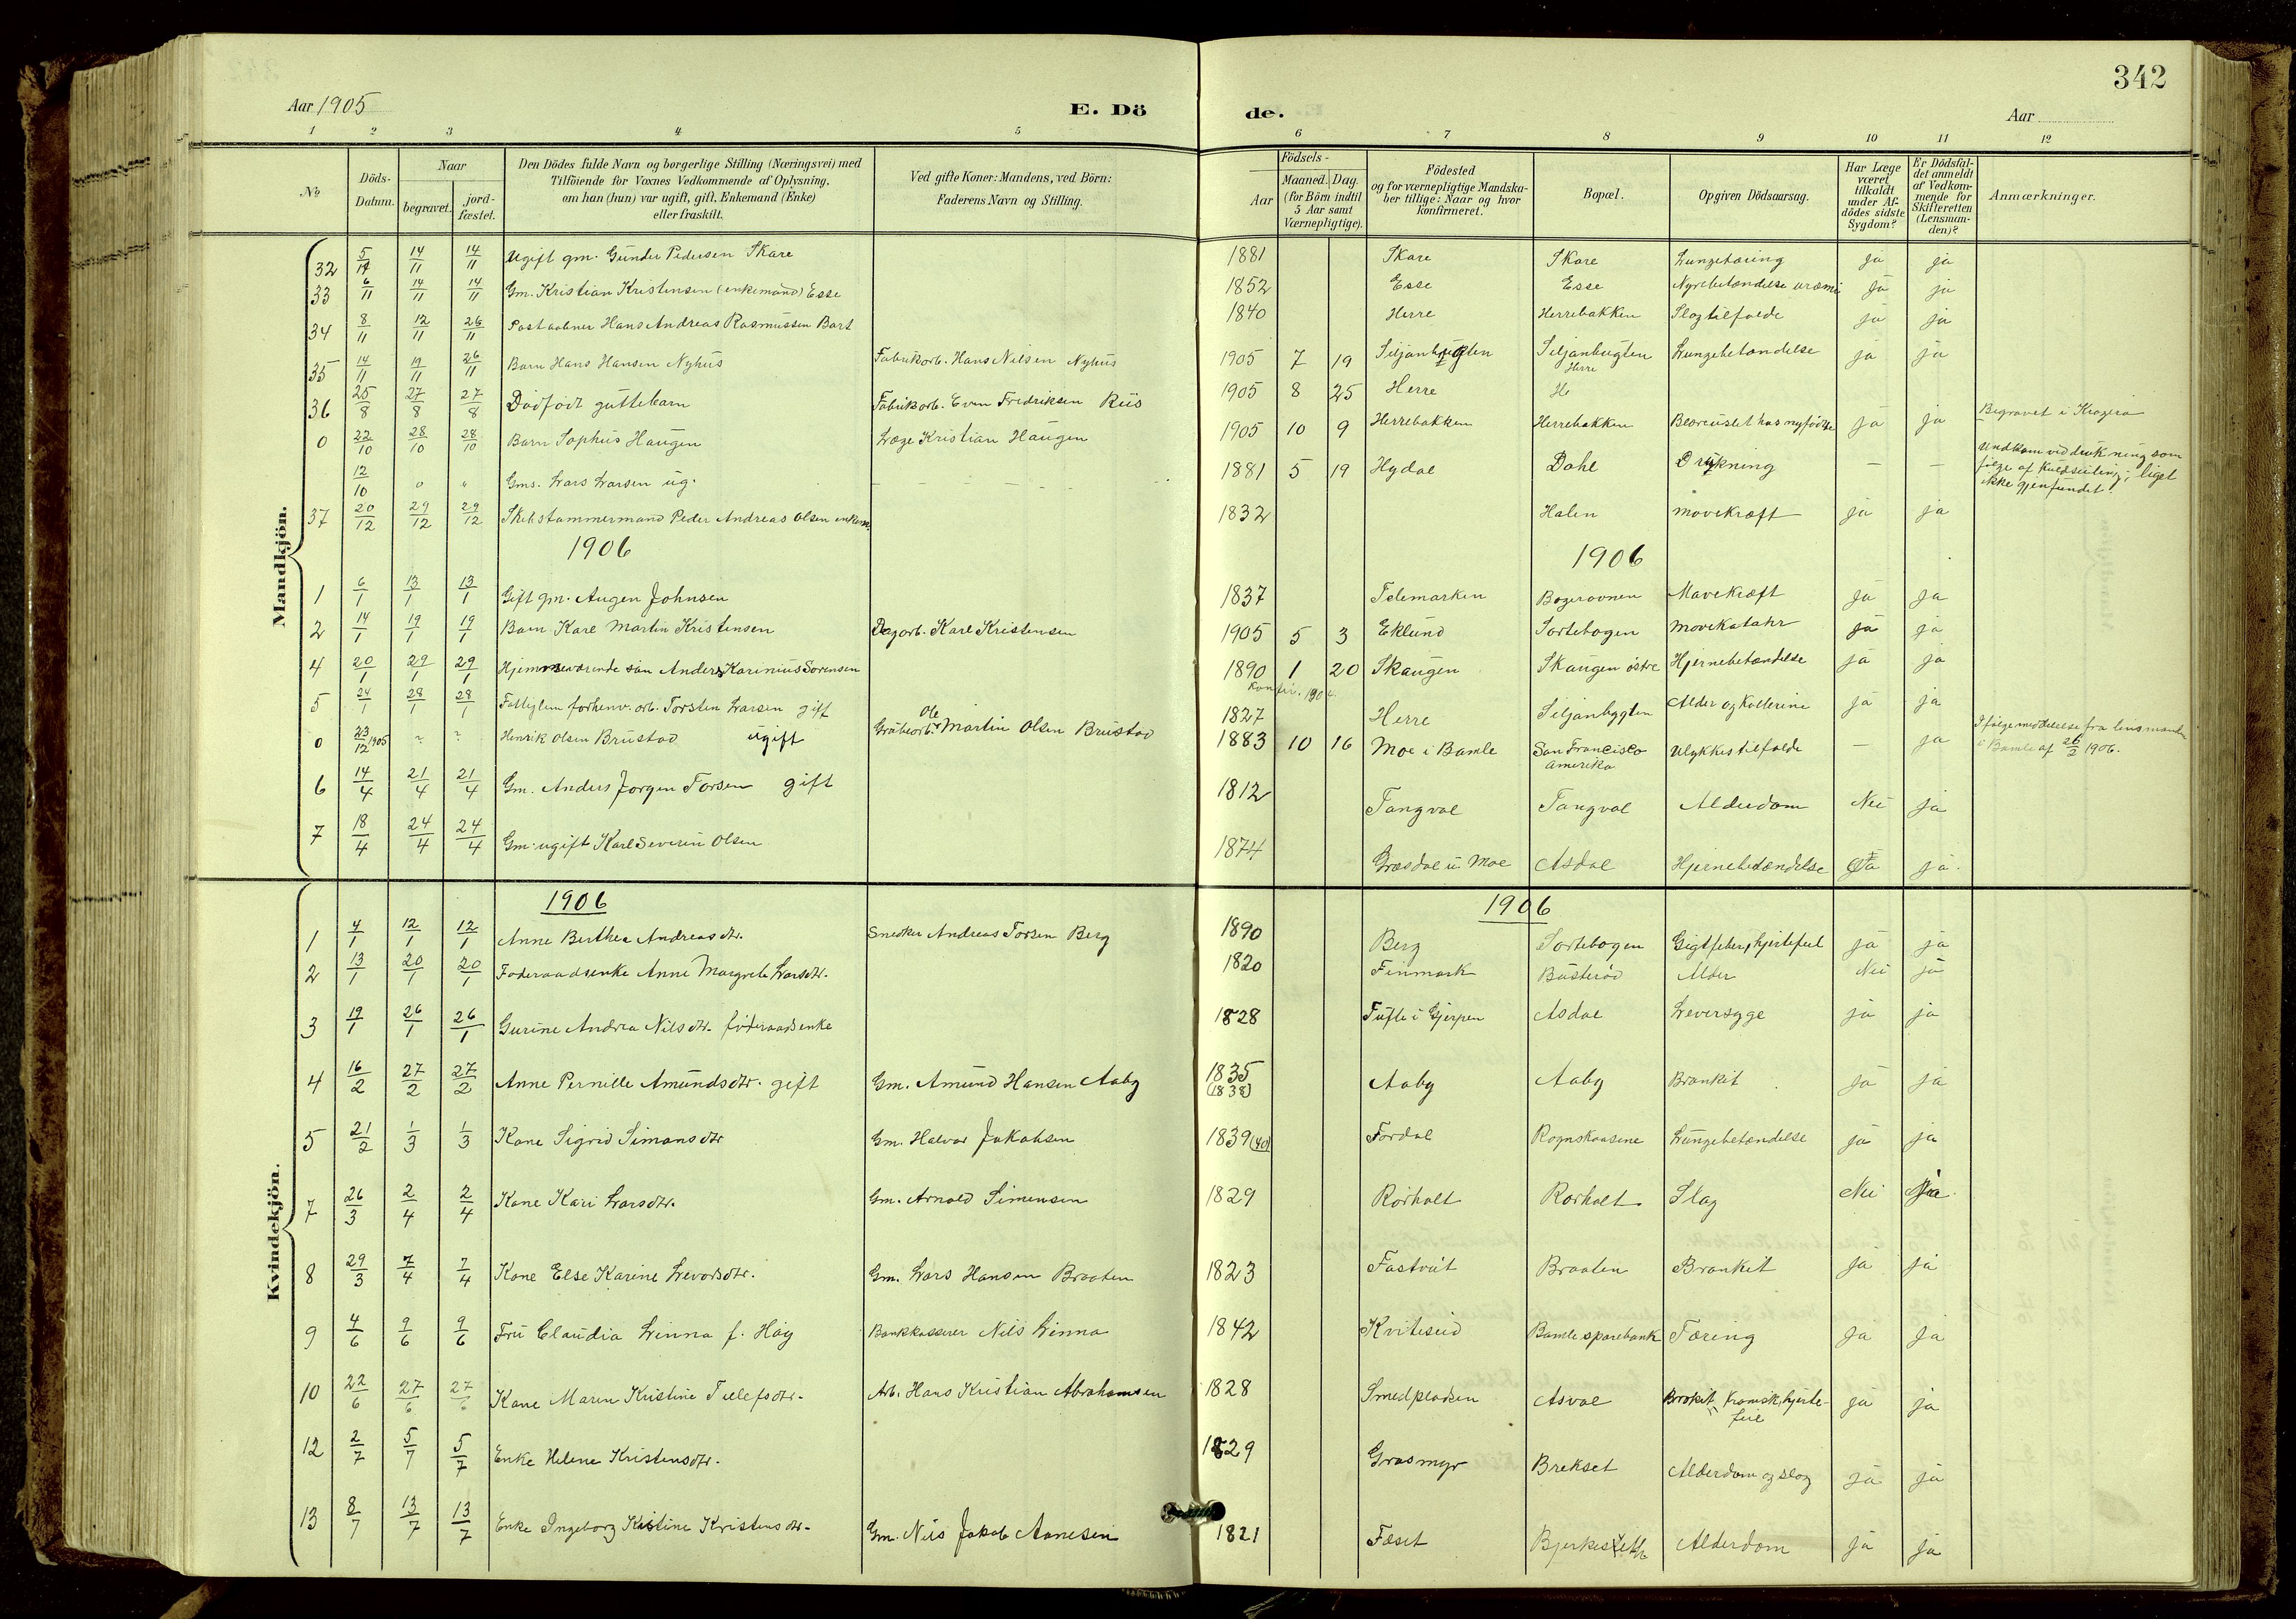 342
Aar 1905 E. Dö de. Aar
1 2 3 4 5 6 7 8 9 10 11 12
No Döds-Datum. Naar begravet. jord-fæstet. Den Dödes fulde Navn og borgerlige Stilling (Næringsvei) med Tilföiende for Voxnes Vedkommende af Oplysning, om han (hun) var ugift, gift, Enkemand (Enke) eller fraskilt. Ved gifte Koner: Mandens, ved Börn: Faderens Navn og Stilling. Födsels- Aar Maaned. Dag (for Börn indtil 5 Aar samt Værnepligtige). Födested og for værnepligtige Mandska-ber tillige: Naar og hvor konfirmeret. Bopæl. Opgiven Dödsaarsag. Har Læge været tilkaldt under Af-dödes sidste Sygdom? Er Dödsfal-det anmeldt af Vedkom-mende for Skifteretten (Lensman-den)? Anmærkninger.
Mandkjön.
32 5/11 14/11 14/11 Ugift gm. Gunder Pedersen Skare 1881 Skare Skare Lungetæring ja ja
33 6/11 14/11 14/11 Gm. Kristian Kristensen (enkemand) Esse 1852 Esse Esse Nyrebetændelse uræmi ja ja
34 8/11 12/11 26/11 Postaabner Hans Andreas Rasmussen Bart 1840 Herre Herrebakken Slagtilfælde ja ja
35 14/11 19/11 26/11 Barn Hans Hansen Nyhus Fabrikarb. Hans Nilsen Nyhus 1905 7 19 Siljanbugten Siljanbugten Herre Lungebetændelse ja ja
36 25/8 27/8 27/8 Dødfødt guttebarn Fabrikarb. Even Fredriksen Riis 1905 8 25 Herre He
0 22/10 28/10 28/10 Barn Sophus Haugen Læge Kristian Haugen 1905 10 9 Herrebakken Herrebakken hos nyfødte ja ja Begravet i Kragerø
12/10 " " Gms. Lars Larsen ug. 1881 5 19 Hydal Dahl Drukning — — Undkom ved drukning som følge af Kuldseiling; liget ikke gjenfundet.
37 20/12 29/12 29/12 Skibstømmermand Peder Andreas Olsen enkem. 1832 Halen Mavekræft ja ja
1906 1906
1 6/1 13/1 13/1 Gift gm. Augen Johnsen 1837 Telemarken Bogerovnen Mavekræft ja ja
2 14/1 19/1 19/1 Barn Karl Martin Kristensen Dagarb. Karl Kristensen 1905 5 3 Eklund Sortebogen Mavekatahr ja ja
4 20/1 29/1 29/1 Hjemmeværende søn Anders Karinius Sørensen 1890 1 20 Skaugen Skaugen østre Hjernebetændelse ja ja
Konfir. 1904.
5 24/1 28/1 28/1 Fattiglem forhenv. arb. Torsten Larsen gift 1827 Herre Siljanbygten Alder og Kollerine ja ja
0 23/12 1905 ? ? Henrik Olsen Brustad ugift Grubearb. Ole Martin Olsen Brustad 1883 10 16 Moe i Bamle San Francisco Amerika Ulykkestilfælde — ja Ifølge meddelelse fra lensmanden i Bamle af 26/2 1906.
6 14/4 21/4 21/4 Gm. Anders Jørgen Torsen gift 1812 Tangval Tangval Alderdom Nei ja
7 18/4 24/4 24/4 Gm. ugift Karl Severin Olsen 1874 Grasdal u. Moe Asdal Hjernebetændelse Ja ja
Kvindekjön.
1906 1906
1 4/1 12/1 12/1 Anne Berthea Andreasdtr. Snedker Andreas Torsen Berg 1890 Berg Sortebogen Gigtfeber, hjertefeil ja ja
2 13/1 20/1 20/1 Føderaadsenke Anne Margrete Larsdtr. 1820 Finmark Busterød Alder Nei ja
3 19/1 26/1 26/1 Gurine Andrea Nilsdtr. føderaadsenke 1828 Tufte i Gjerpen Asdal Leversyge ja ja
4 16/2 27/2 27/2 Anne Pernille Amundsdtr. gift Gm. Amund Hansen Aaby 1835 (1838) Aaby Aaby Bronkit ja ja
5 21/2 1/3 1/3 Kone Sigrid Simonsdtr Gm. Halvor Jakobsen 1839 (40) Fordal Rognskaasene Lungebetændelse ja ja
7 26/3 2/4 2/4 Kone Kari Larsdtr. Gm. Arnold Simensen 1829 Rørholt Rørholt Slag Nei Ja
8 29/3 7/4 7/4 Kone Else Karine Levorsdtr. Gm. Lars Hansen Braaten 1823 Fastvit Braaten Bronkit ja ja
9 4/6 9/6 9/6 Fru Claudia Linna f. Høg Bankkasserer Nils Linna 1842 Kviteseid Bamle sparebank Tæring ja ja
10 22/6 27/6 27/6 Kone Maren Kristine Tellefsdtr. Arb. Hans Kristian Abrahamsen 1828 Smedpladsen Asval Bronkit, kronisk, hjerte-feil ja ja
12 2/7 5/7 5/7 Enke Helene Kristensdtr. 1829 Grasmyr Brekset Alderdom og slag ja ja
13 8/7 13/7 13/7 Enke Ingeborg Kristine Kristensdtr. Gm. Nils Jakob Aanesen 1821 Fæset Alderdom ja ja